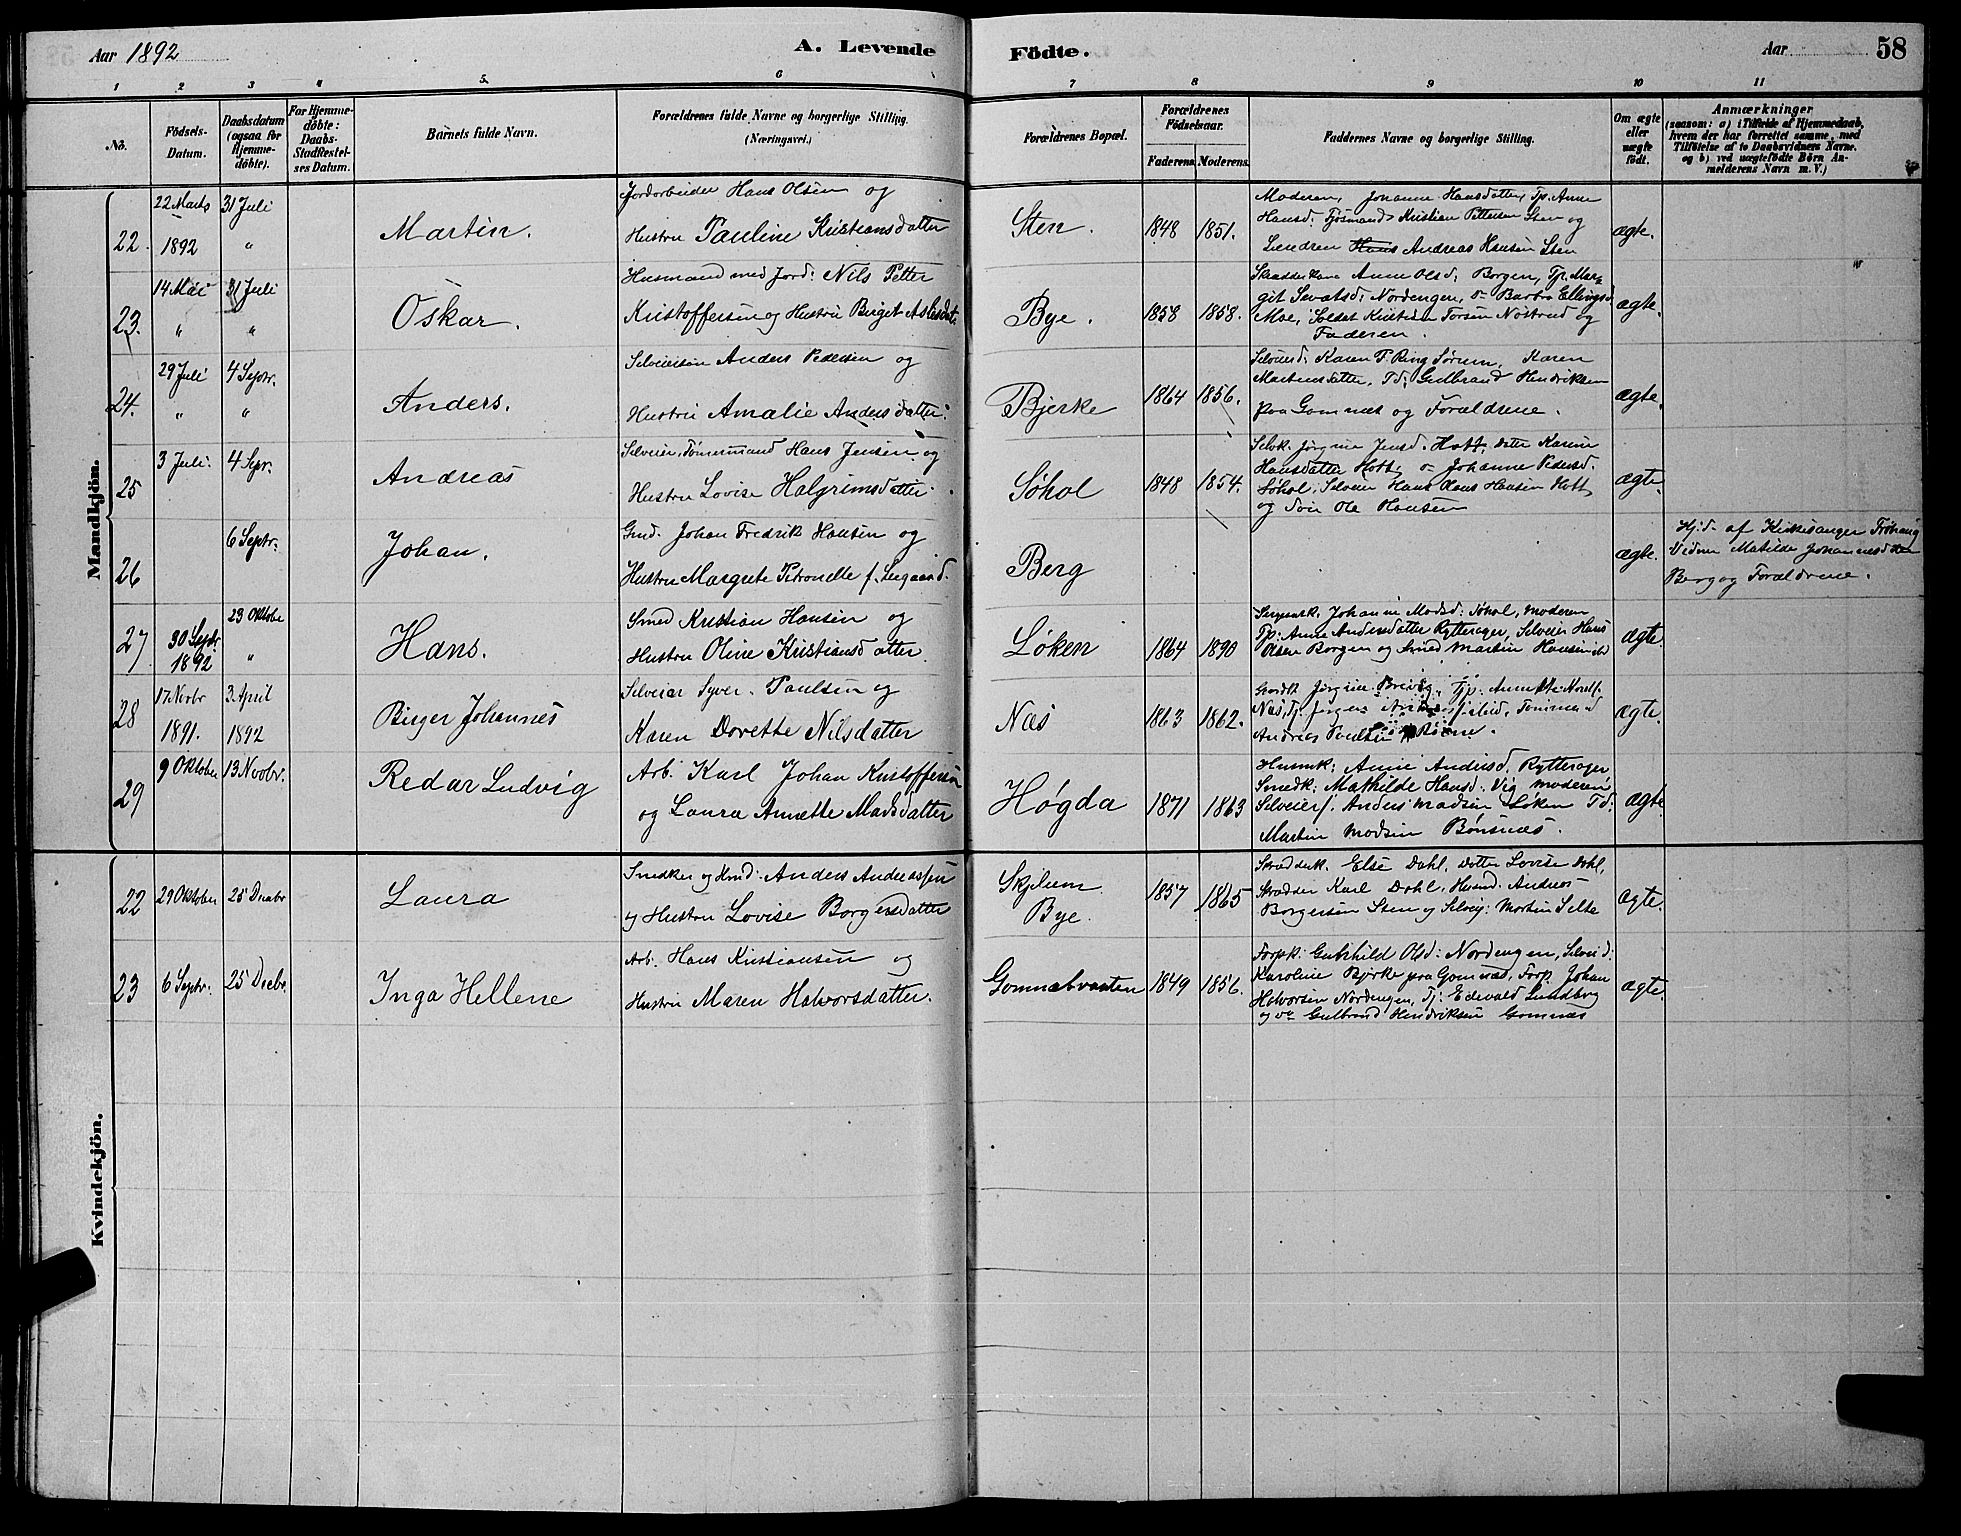 Aar 1892
A. Levende
Födte.
Aar
58
1 2 3 4 5. 6 7 8 9 10 11
No.
Födsels-
Datum.
Daabsdatum
(ogsaa for
Hjemme-
döbte).
For Hjemme-
döbte:
Daabs-
Stadfestel-
ses Datum.
Barnets fulde Navn.
Forældrenes fulde Navne og borgerlige Stilling.
(Næringsvei.)
Forældrenes Bopæl.
Forældrenes
Födselsaar.
Faderens Moderens.
Faddernes Navne og borgerlige Stilling.
Om ægte
eller
uægte
födt.
Anmærkninger
(saasom: a) i Tilfælde af Hjemmedaab,
hvem der har forrettet samme, med
Tilföielse af to Daabsvidners Navne.
og b) ved uægtefödte Börn An-
melderens Navn m. V.)
Mandkjön.
22.
22 Marts
1892
31 Juli
"
Martin.
Jordarbeider Hans Olsen og
Hustru Pauline Kristiansdatter
Sten.
1848 1851.
Moderen, Johanne Hansdatter, Tp. Anne
Hansd. Kristian Pettersen Sten og
Hans Andreas Hansen Sten
ægte.
23.
14 Mai
"
31 Juli
"
Oskar.
Husmand med Jord: Nils Petter
Kristoffersen og Hustru Birget
Bye.
1858 1858.
Anne Olsd: Borgen, Tp. Mar-
git Nordengen, Barbro Ellingsd
Moe, Soldat Kristian og
Faderen.
ægte.
24.
29 Juli
"
4 Septr.
"
Anders.
Selveiersøn Anders Pedersen og
Hustru Amalie Andersdatter.
Bjerke
1864 1856.
Karen T. Ring Sørum, Karen
Martinsdatter, Gulbrand Hendriksen
paa Gomnæs og Forældrene.
ægte.
25
3 Juli.
4 Sepr.
Andreas
Selveier, Tømmermand Hans Jensen og
Hustru Lovise Halgrimsdatter.
Søhol
1848 1854.
Selvk. Jørgine Jensd. Hatt, datter Karine
Hansdatter Hott, Johanne Pedersd.
Søhol, Selveier Hans Hansen Hott
og Søn Ole Hansen
ægte.
26
6 Septr.
Johan.
Gmd. Johan Fredrik Hansen og
Hustru Margrete Petronelle f.
Berg
ægte.
Hj.d. af Kirkesanger Frøhaug
Vidne Matilde
Berg og Forældrene.
27
30 Septr.
1892
23 Oktobe
"
Hans.
Smed Kristian Hansen og
Hustru Oline Kristiansdatter.
Løken
1864 1890
Johanne Madsd: Søhol, Moderen
Tp: Anne Andersdatter Rytterager, Selveier Hans
Olsen Borgen og Smed Martin Hansen
ægte
28
17 Novbr
1891.
3 April
1892
Birger Johannes
Selveier Syver. Paulsen og
Karen Dorette Nilsdatter
Næs
1863 1862.
Jørgine
Næs,
Andreas Paulsen
ægte.
29
9 Oktober
13 Novbr.
Redar Ludvig
Arb. Karl Johan Kristoffersen
og Laura Annette Madsdatter
Høgda
1871 1863
Husmk: Anne Andersd. Rytterager
Smedk: Mathilde Hansd. Vig Moderen
Selveiers. Anders Madsen Løken Td.
Martin Madsen Bønsnæs.
ægte
Kvindekjön.
22
29 Oktober
25 Decbr
Laura
Snedker og Hmd: Anders Andreassen
og Hustru Lovise Borgersdatter
Skjelum
Bye.
1857 1865
Skrædderk. Else Dahl, Datter Lovise Dahl,
Skrædder Karl Dahl, Husmd. Andreas
Borgersen Sten og Selvej: Martin Selte
ægte.
23
6 Septr.
25 Decbr.
Inga Hellene
Arb. Hans Kristiansen og
Hustru Maren Halvorsdatter.
Gomnæsvanten
1849 1856.
Forpk: Gunhild Olsd: Nordengen, Selveid:
Karoline Bjerke paa Gomnæs, Forp. Johan
Halvorsen Nordengen, Tj: Edevald Lundby
og Gulbrand Hendriksen Gomnæs
ægte.